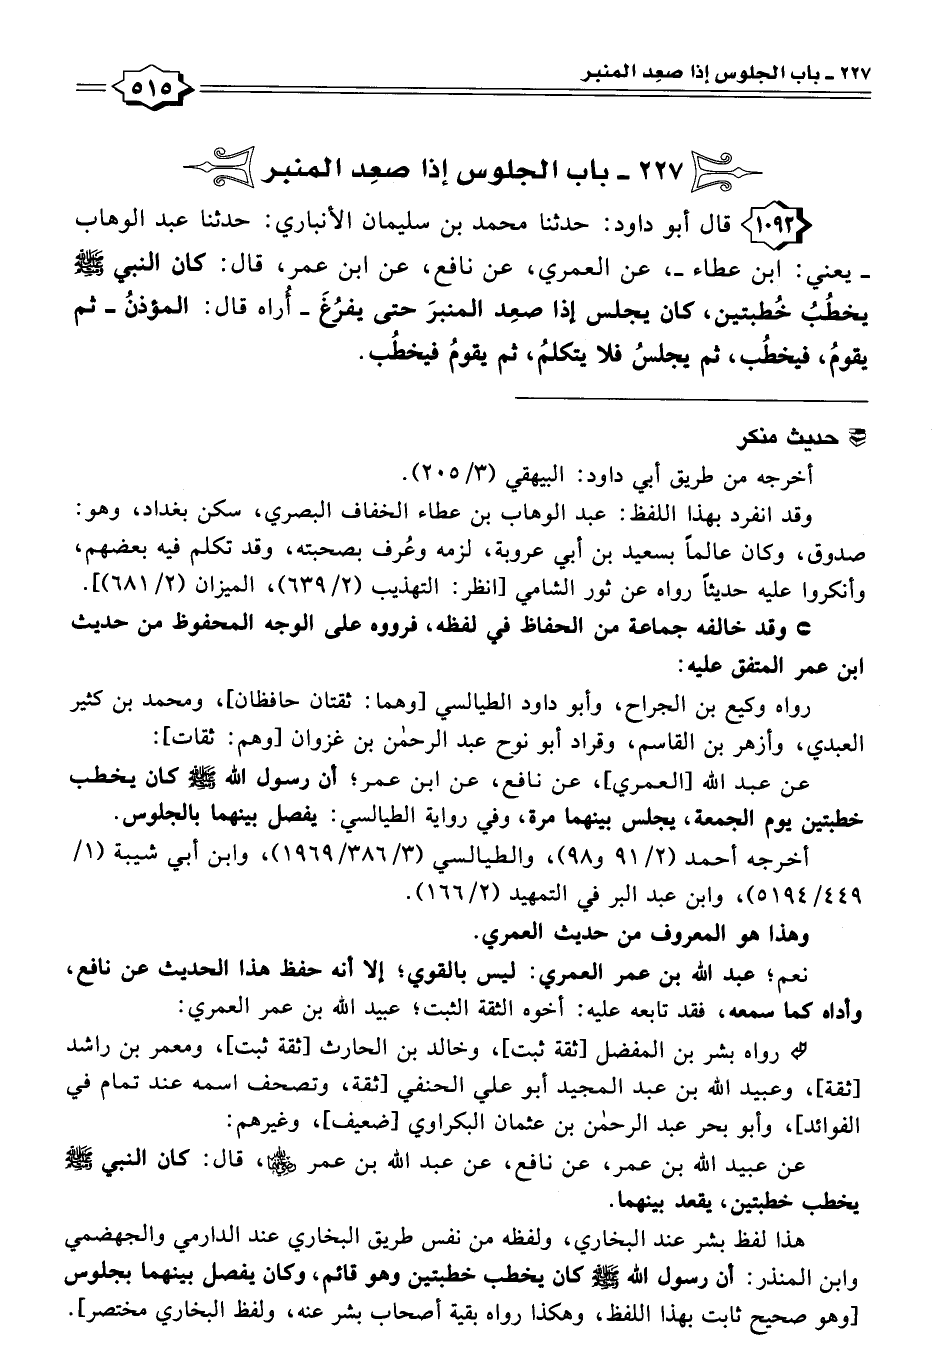 ٢٢٧ ـ باب الجلوس إذا صعِد المنبر
٥١٥
٢٢٧ ـ باب الجلوس إذا صعِد المنبر
١٠٩٢ قال أبو داود: حدثنا محمد بن سليمان الأنباري: حدثنا عبد الوهاب
ـ يعني: ابن عطاء ـ، عن العمري، عن نافع، عن ابن عمر، قال: كان النبي ﷺ
يخطُبُ خُطبتين، كان يجلس إذا صعِد المنبرَ حتى يفرُغَ ـ أُراه قال: المؤذنُ ـ ثم
يقومُ، فيخطُب، ثم يجلسُ فلا يتكلمُ، ثم يقومُ فيخطُب.
حديث منكر
أخرجه من طريق أبي داود: البيهقي (٣/ ٢٠٥).
وقد انفرد بهذا اللفظ: عبد الوهاب بن عطاء الخفاف البصري، سكن بغداد، وهو:
صدوق، وكان عالماً بسعيد بن أبي عروبة، لزمه وعُرف بصحبته، وقد تكلم فيه بعضهم،
وأنكروا عليه حديثاً رواه عن ثور الشامي [انظر: التهذيب (٢/ ٦٣٩)، الميزان (٢/ ٦٨١)].
وقد خالفه جماعة من الحفاظ في لفظه، فرووه على الوجه المحفوظ من حديث
ابن عمر المتفق عليه:
رواه وكيع بن الجراح، وأبو داود الطيالسي [وهما: ثقتان حافظان]، ومحمد بن كثير
العبدي، وأزهر بن القاسم، وقراد أبو نوح عبد الرحمٰن بن غزوان [وهم: ثقات]:
عن عبد الله [العمري]، عن نافع، عن ابن عمر؛ أن رسول الله ﷺ كان يخطب
خطبتين يوم الجمعة، يجلس بينهما مرة، وفي رواية الطيالسي: يفصل بينهما بالجلوس.
أخرجه أحمد (٢/ ٩١ و٩٨)، والطيالسي (٣/ ٣٨٦/ ١٩٦٩)، وابن أبي شيبة (١/
٤٤٩/ ٥١٩٤)، وابن عبد البر في التمهيد (٢/ ١٦٦).
وهذا هو المعروف من حديث العمري.
نعم؛ عبد الله بن عمر العمري: ليس بالقوي؛ إلا أنه حفظ هذا الحديث عن نافع،
وأداه كما سمعه، فقد تابعه عليه: أخوه الثقة الثبت؛ عبيد الله بن عمر العمري:
رواه بشر بن المفضل [ثقة ثبت]، وخالد بن الحارث [ثقة ثبت]، ومعمر بن راشد
[ثقة]، وعبيد الله بن عبد المجيد أبو علي الحنفي [ثقة، وتصحف اسمه عند تمام في
الفوائد]، وأبو بحر عبد الرحمٰن بن عثمان البكراوي [ضعيف]، وغيرهم:
عن عبيد الله بن عمر، عن نافع، عن عبد الله بن عمر ﵄، قال: كان النبي ﷺ
يخطب خطبتين، يقعد بينهما.
هذا لفظ بشر عند البخاري، ولفظه من نفس طريق البخاري عند الدارمي والجهضمي
وابن المنذر: أن رسول الله ﷺ كان يخطب خطبتين وهو قائم، وكان يفصل بينهما بجلوس
[وهو صحيح ثابت بهذا اللفظ، وهكذا رواه بقية أصحاب بشر عنه، ولفظ البخاري مختصر].